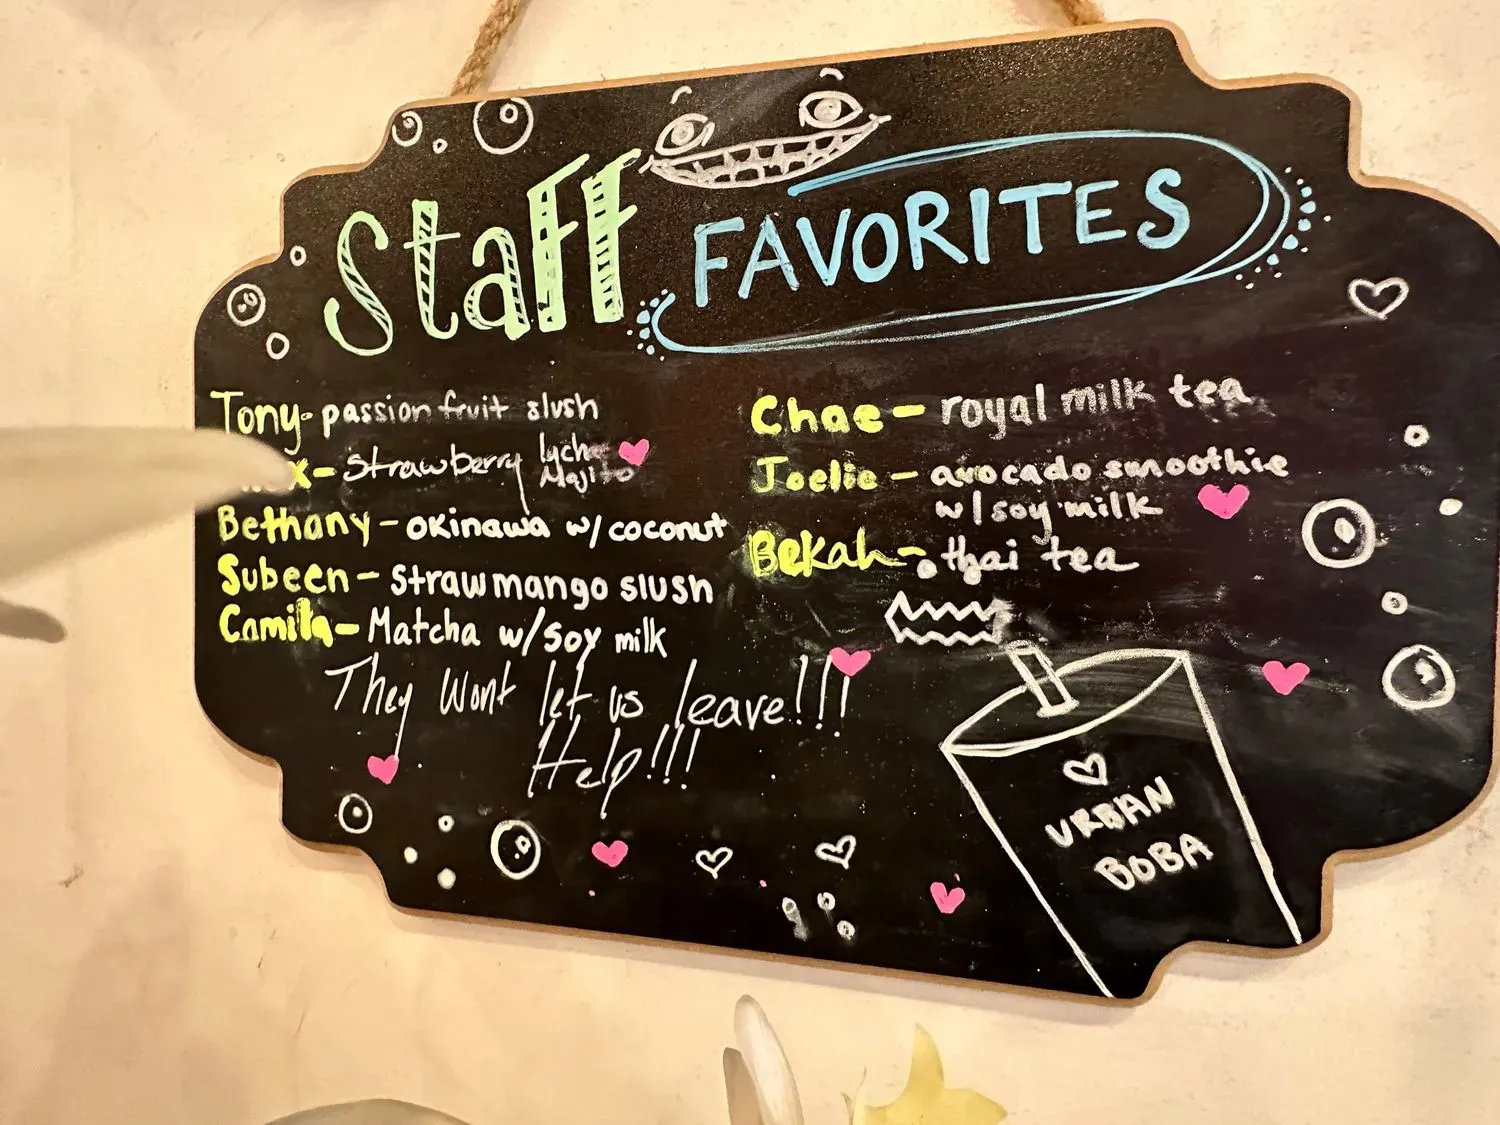 Staff FAVORITES
Tony- passion fruit slush
x- strawberry lyche Mojito
Bethany - okinawa w/ coconut
Subeen - strawmango slush
Camila - Matcha w/ soy milk
Chae - royal milk tea
Joelie - avocado smoothie
w/ soy milk
Bekah - thai tea
They Wont let us leave!!!
Help!!!
URBAN
BOBA